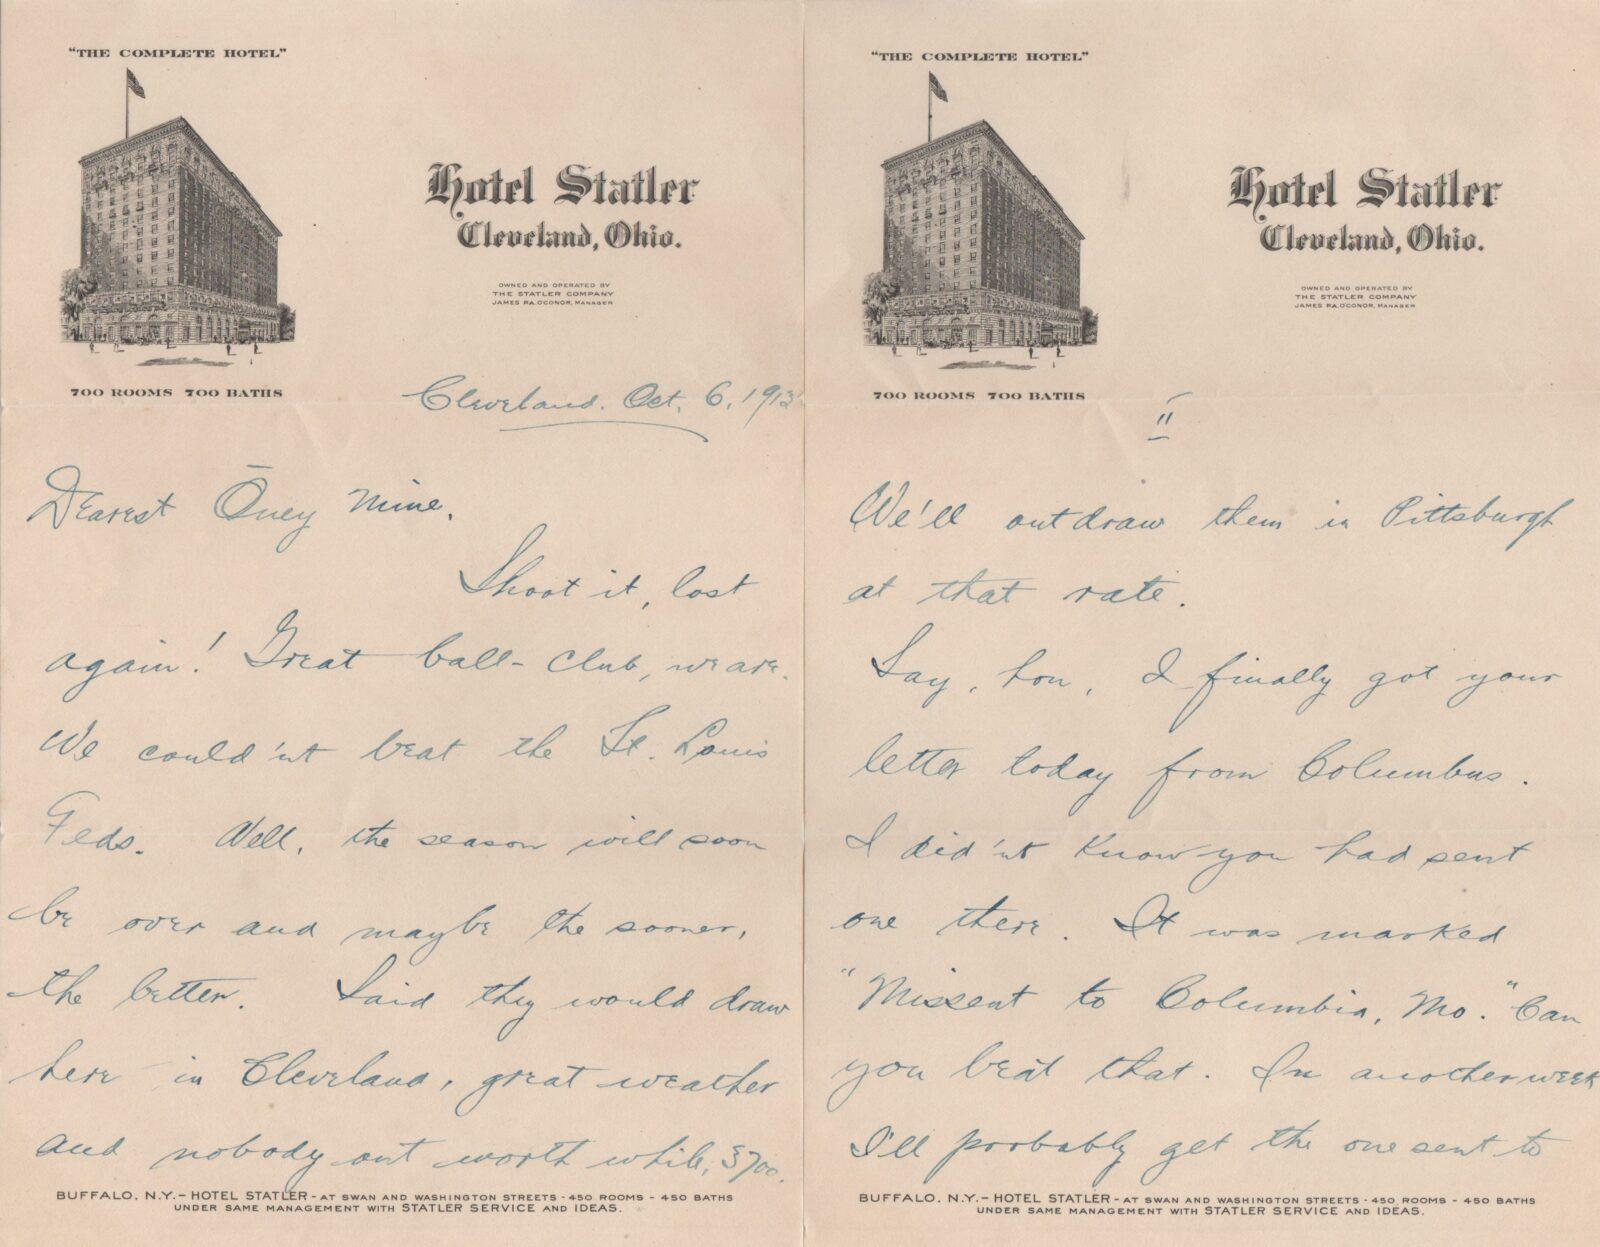 "THE COMPLETE HOTEL"
Hotel Statler
Cleveland, Ohio.
OWNED AND OPERATED BY
THE STATLER COMPANY
JAMES R.A. O'CONOR, MANAGER
700 ROOMS 700 BATHS
Cleveland. Oct. 6, 1913
Dearest Ōney mine,
Shoot it, lost
again! Great ball-club, we are.
We could'nt beat the St. Louis
Feds. Well, the season will soon
be over and maybe the sooner,
the better. Said they would draw
here in Cleveland, great weather
and nobody out worth while, 3700.
BUFFALO, N.Y.- HOTEL STATLER - AT SWAN AND WASHINGTON STREETS - 450 ROOMS - 450 BATHS
UNDER SAME MANAGEMENT WITH STATLER SERVICE AND IDEAS.
"THE COMPLETE HOTEL"
Hotel Statler
Cleveland, Ohio.
OWNED AND OPERATED BY
THE STATLER COMPANY
JAMES R.A. O'CONOR, MANAGER
700 ROOMS 700 BATHS
II
We'll outdraw them in Pittsburgh
at that rate.
Say, hon, I finally got your
letter today from Columbus.
I did'nt know you had sent
one there. It was marked
"Missent to Columbia, Mo." Can
you beat that. In another week
I'll probably get the one sent to
BUFFALO, N.Y.- HOTEL STATLER - AT SWAN AND WASHINGTON STREETS - 450 ROOMS - 450 BATHS
UNDER SAME MANAGEMENT WITH STATLER SERVICE AND IDEAS.